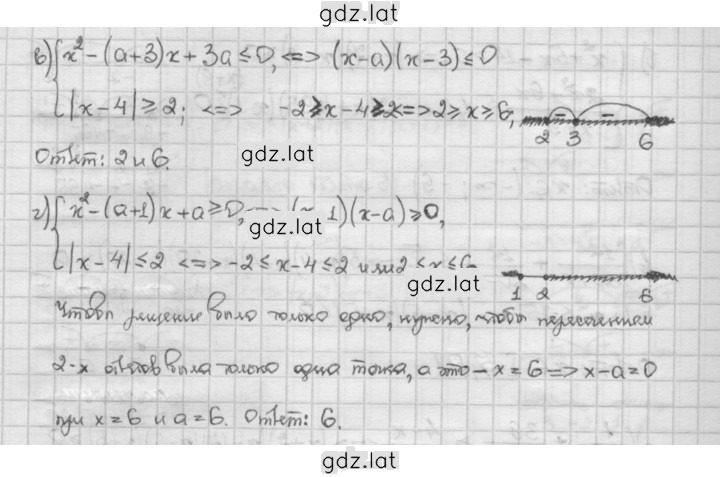 gdz.lat
в) { x² - (a+3)x + 3a ≤ 0, <=> (x-a)(x-3) ≤ 0
|x-4| ≥ 2; <=> -2 ≥ x-4 ≥ 2 <=> 2 ≥ x ≥ 6,
2 3 6
Ответ: 2 и 6.
gdz.lat
г) { x² - (a+1)x + a ≥ 0, 1)(x-a) ≥ 0,
gdz.lat
|x-4| ≤ 2 <=> -2 ≤ x-4 ≤ 2 или 2 ≤ x ≤ 6
gdz.lat
1 2 6
Чтобы решение было только одно, нужно, чтобы пересечением
2-х ответов была только одна точка, а это - x = 6 => x-a=0
при x=6 и a=6. Ответ: 6.
gdz.lat